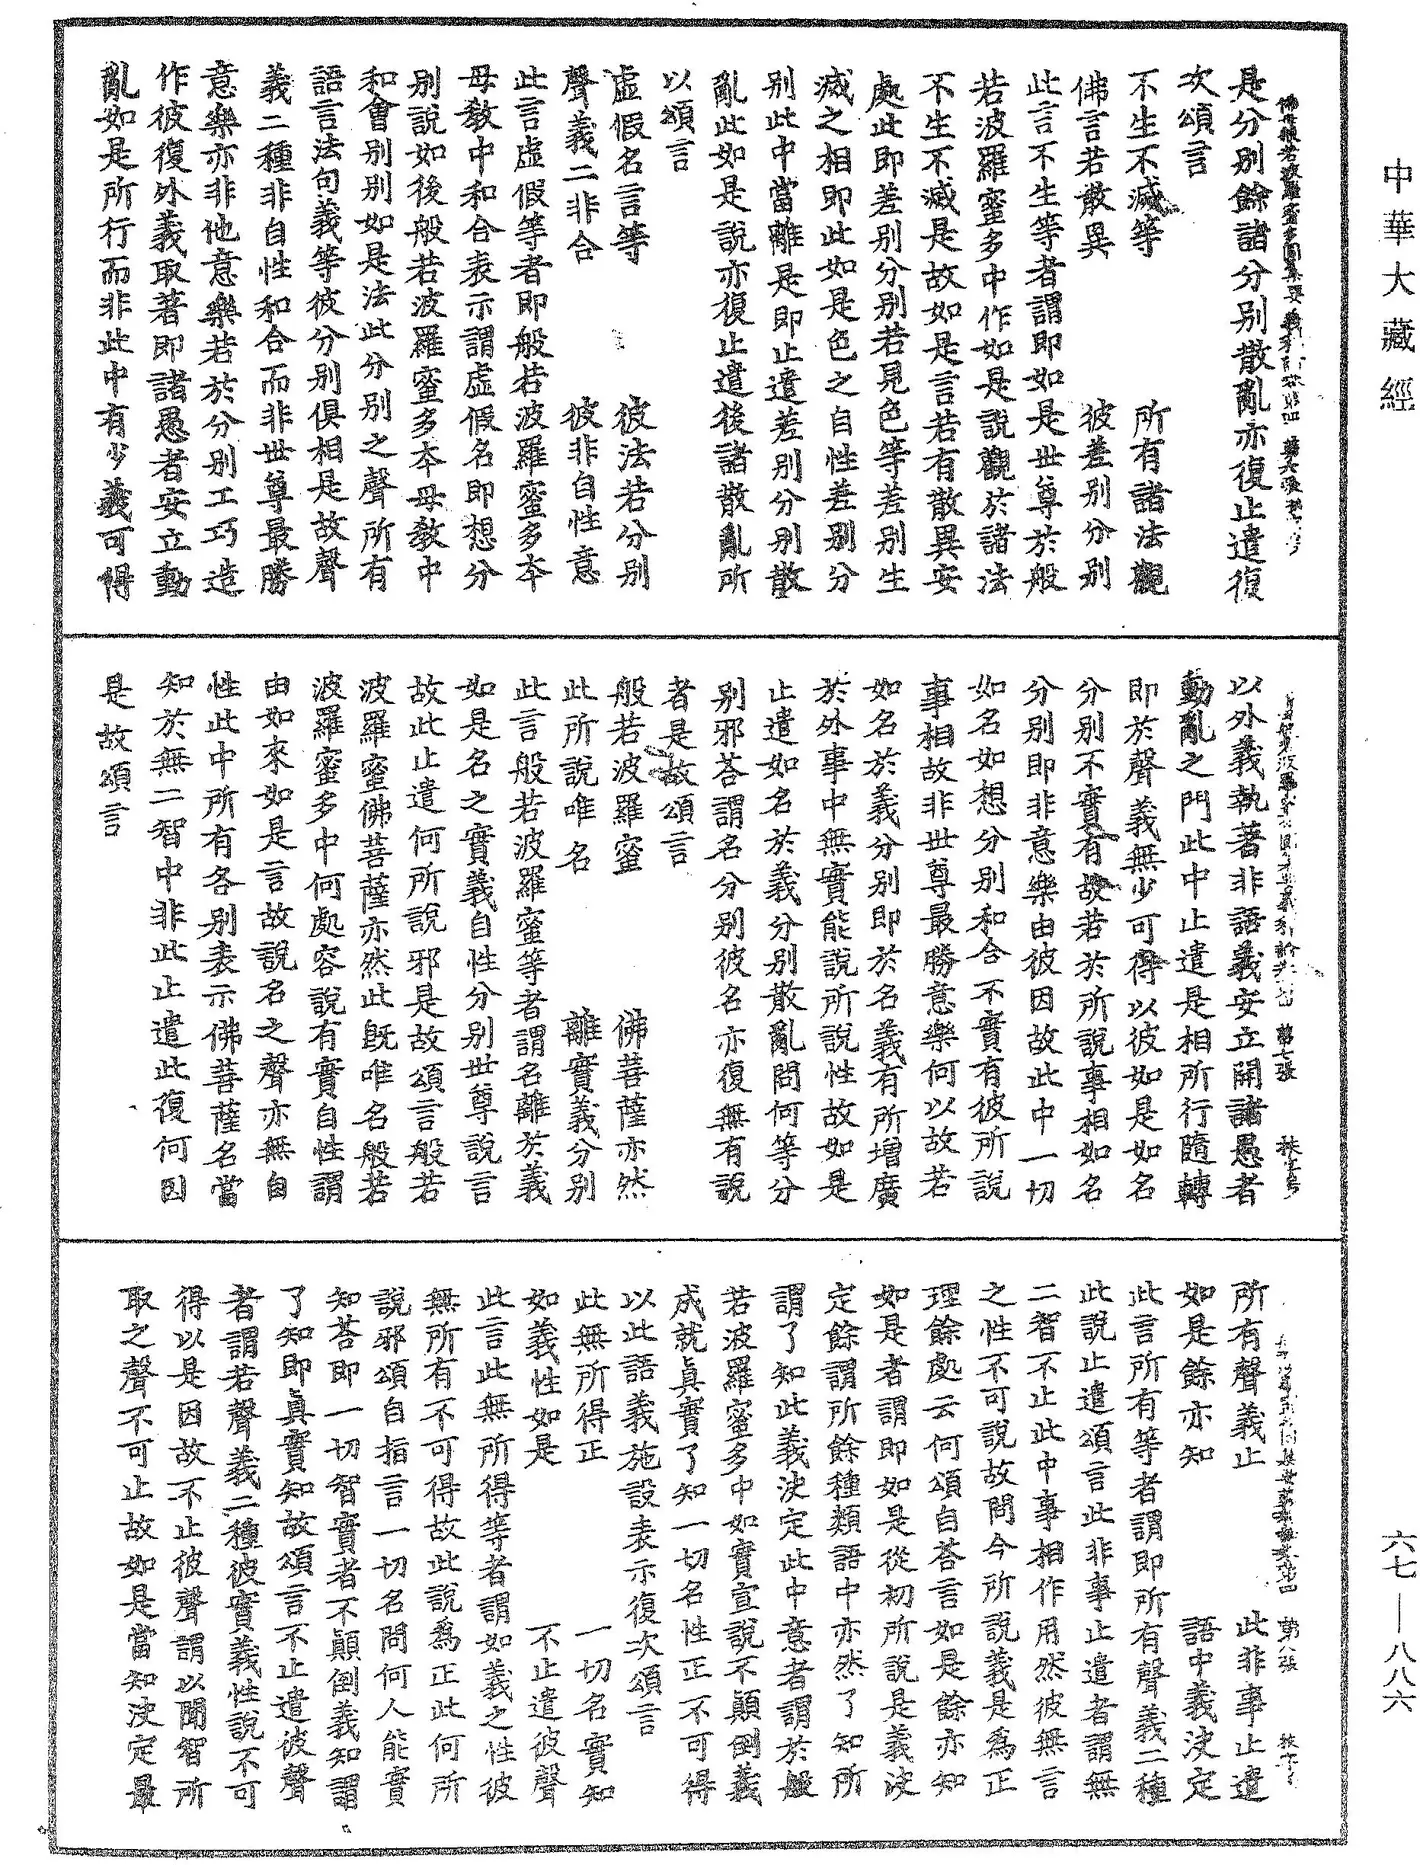 中華大藏經
是分別餘諸分別散亂亦復止遣復
次頌言
不生不滅等　所有諸法觀
佛言若散異　彼差別分別
此言不生等者謂即如是世尊於般
若波羅蜜多中作如是說觀於諸法
不生不滅是故如是言若有散異安
處此即差別分別若見色等差別生
滅之相即此如是色之自性差別分
別此中當離是即止遣差別分別散
亂此如是說亦復止遣後諸散亂所
以頌言
虛假名言等　彼法若分別
聲義二非合　彼非自性意
此言虛假等者即般若波羅蜜多本
母教中和合表示謂虛假名即想分
別說如後般若波羅蜜多本母教中
和會別別如是法此分別之聲所有
語言法句義等彼分別俱相是故聲
義二種非自性和合而非世尊最勝
意樂亦非他意樂若於分別工巧造
作彼復外義取著即諸愚者安立動
亂如是所行而非此中有少義可得
以外義執著非語義安立開諸愚者
動亂之門此中止遣是相所行隨轉
即於聲義無少可得以彼如是如名
分別不實有故若於所說事相如名
分別即非意樂由彼因故此中一切
如名如想分別和合不實有彼所說
事相故非世尊最勝意樂何以故若
如名於義分別即於名義有所增廣
於外事中無實能說所說性故如是
止遣如名於義分別散亂問何等分
別邪荅謂名分別彼名亦復無有說
者是故頌言
般若波羅蜜　佛菩薩亦然
此所說唯名　離實義分別
此言般若波羅蜜等者謂名離於義
如是名之實義自性分別世尊說言
故此止遣何所說邪是故頌言般若
波羅蜜佛菩薩亦然此既唯名般若
波羅蜜多中何處容說有實自性謂
由如來如是言故說名之聲亦無自
性此中所有各別表示佛菩薩名當
知於無二智中非此止遣此復何因
是故頌言
所有聲義止　此非事止遣
如是餘亦知　語中義決定
此言所有等者謂即所有聲義二種
此說止遣頌言此非事止遣者謂無
二智不止此中事相作用然彼無言
之性不可說故問今所說義是為正
理餘處云何頌自荅言如是餘亦知
如是者謂即如是從初所說是義決
定餘謂所餘種類語中亦然了知所
謂了知此義決定此中意者謂於般
若波羅蜜多中如實宣說不顛倒義
成就真實了知一切名性正不可得
以此語義施設表示復次頌言
此無所得正　一切名實知
如義性如是　不止遣彼聲
此言此無所得等者謂如義之性彼
無所有不可得故此說為正此何所
說邪頌自指言一切名問何人能實
知荅即一切智實者不顛倒義知謂
了知即真實知故頌言不止遣彼聲
者謂若聲義二種彼實義性說不可
得以是因故不止彼聲謂以聞智所
取之聲不可止故如是當知決定最
六七—八八六